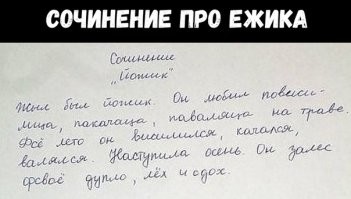 СОЧИНЕНИЕ ПРО ЕЖИКА
Сочинение
„Йожик"
Жыл был йожик. Он любил повиси-
лица, пакачаца, паваляца на траве.
Фсё лето он висилился, качался,
валялся. Наступила осень. Он залес
фсваё дупло, лёх и одох.